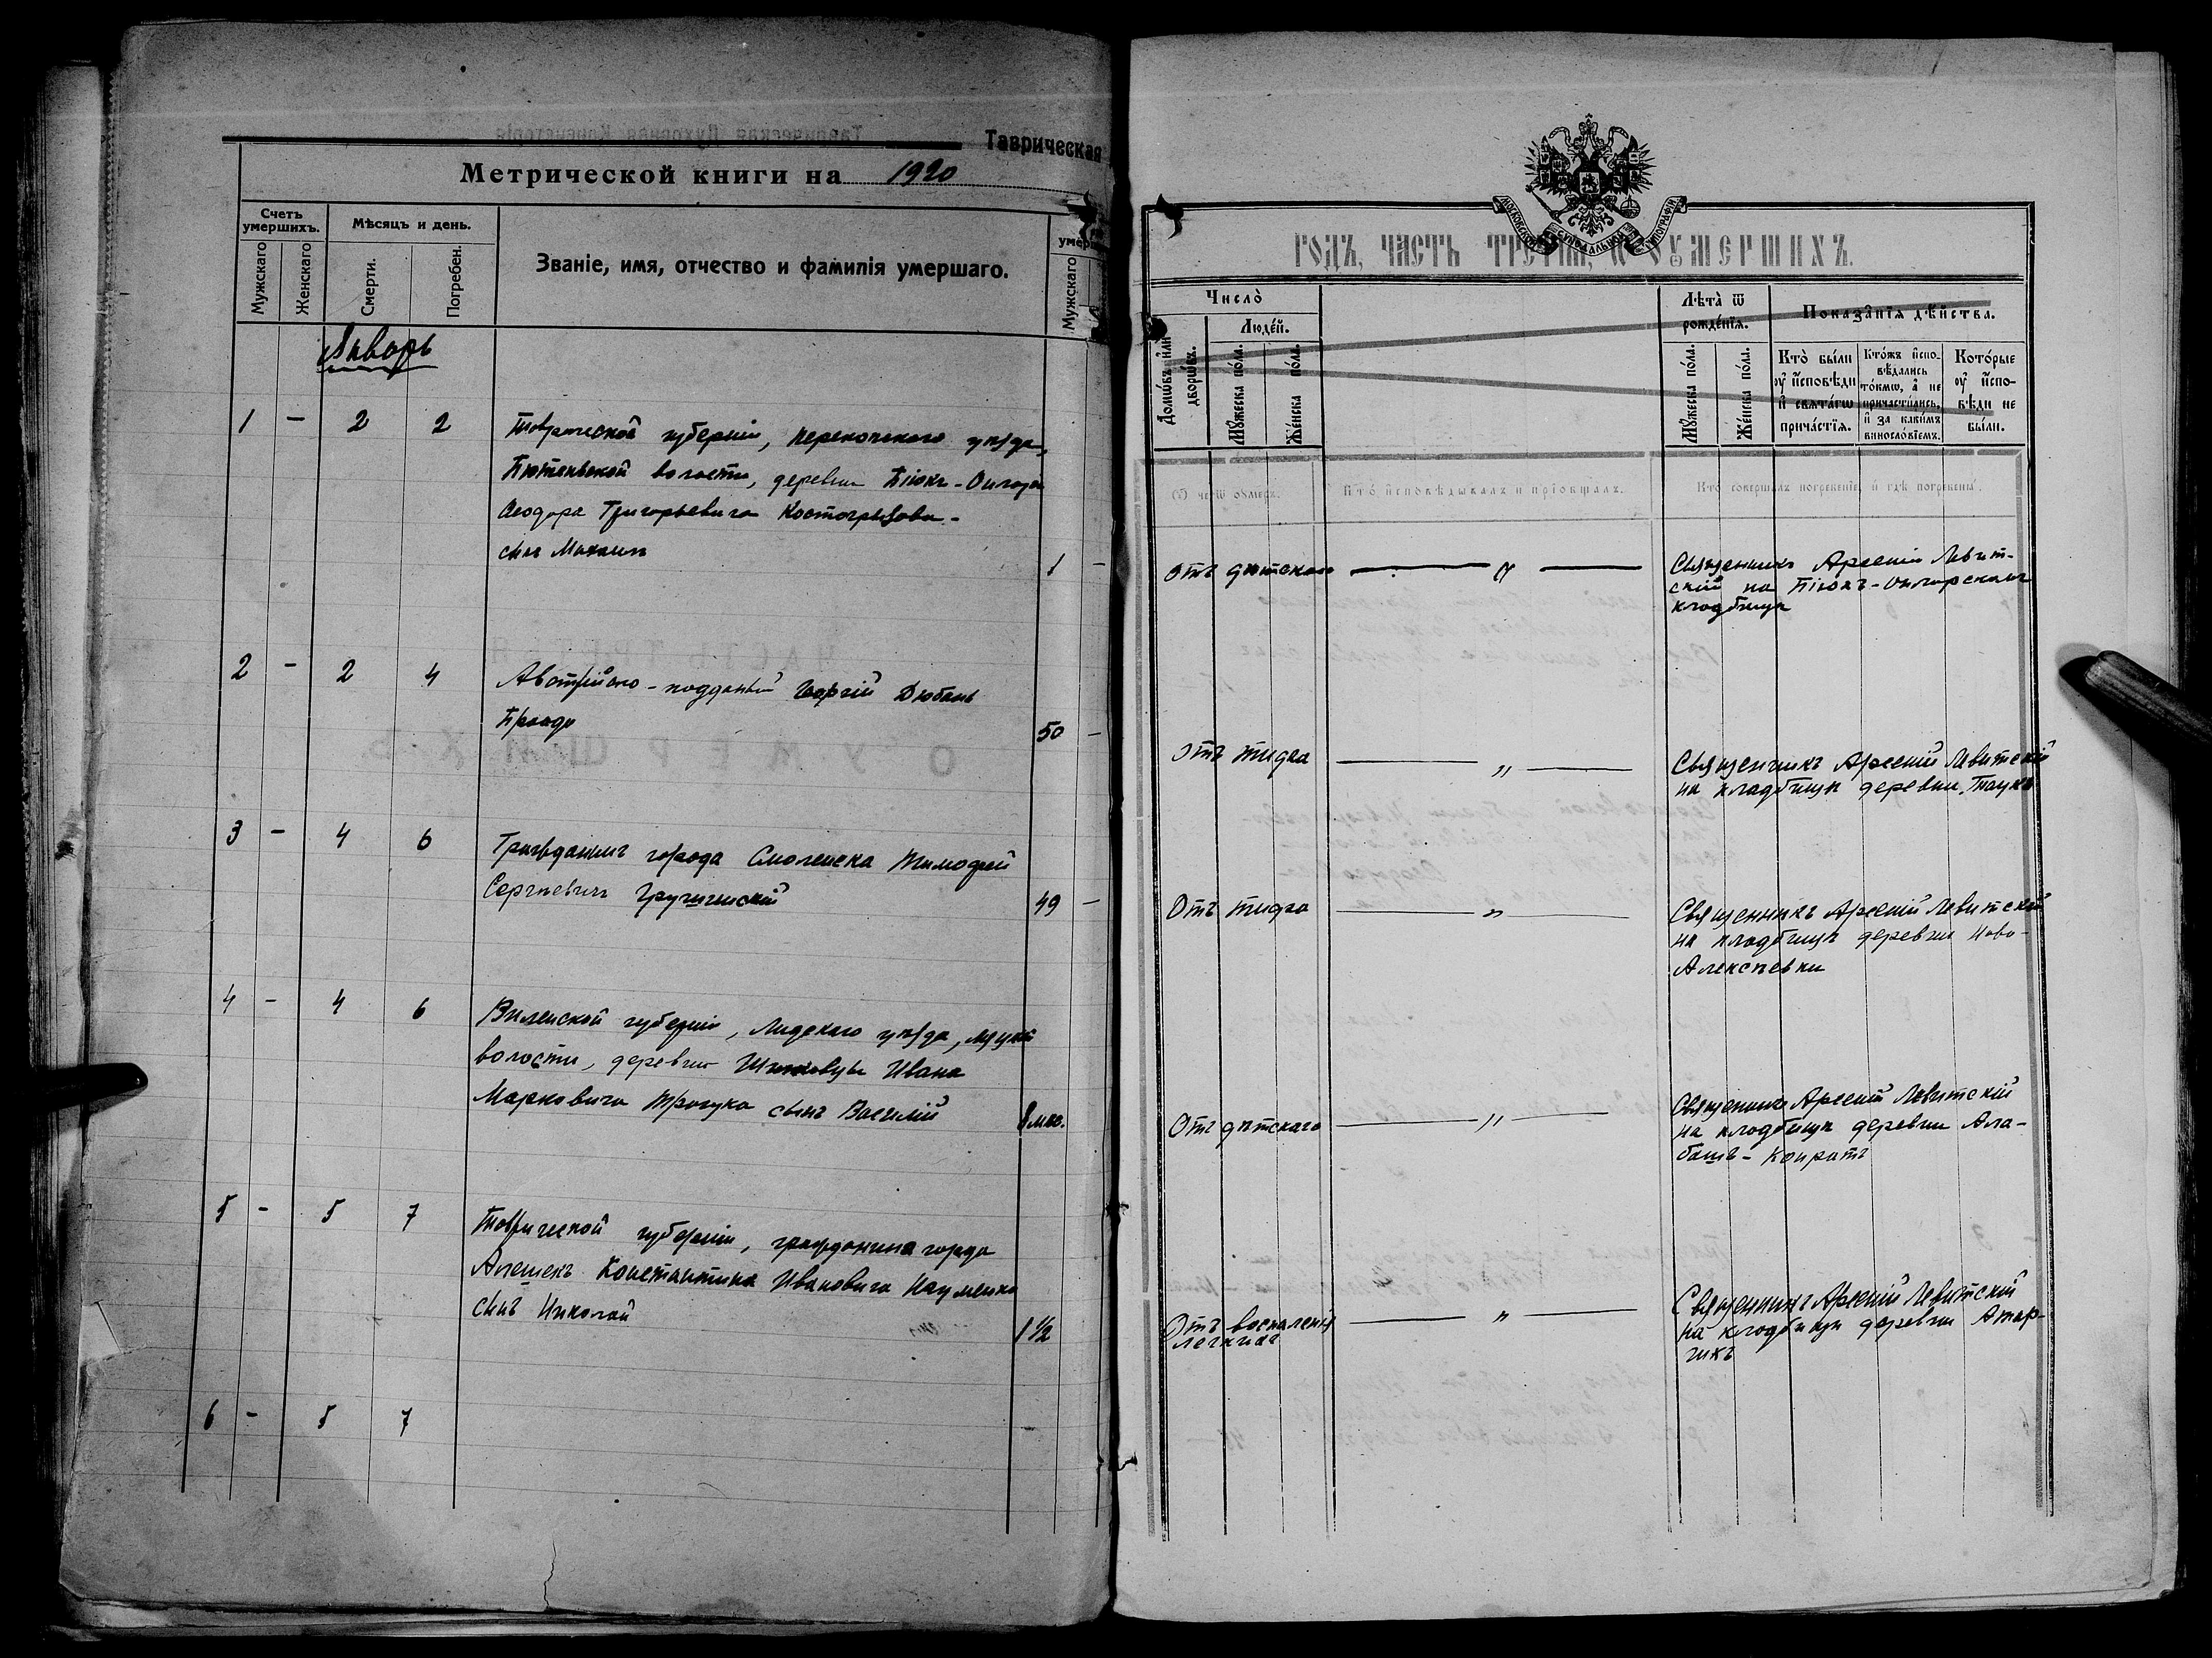 Таврическая
Метрической книги на 1920
Счетъ умершихъ.
Мѣсяцъ и день.
Званіе, имя, отчество и фамилія умершаго.
Мужскаго
Женскаго
Смерти.
Погребен.
Мужскаго
Январь
1 - 2 2 Таврической губерніи, Перекопскаго уѣзда,
волости, деревни Біюкъ-Онгаръ
Ѳеодора Григорьевича Костогрызова -
сынъ Михаилъ
1 -
2 - 2 4 Австрійско-подданый Георгій
50 -
3 - 4 6 Гражданинъ города Смоленска Тимофей
Сергѣевичъ
49 -
4 - 4 6 Виленской губерніи, Лидскаго уѣзда,
волости, деревни Ивана
Марковича сынъ Василій
8 мѣс.
5 - 5 7 Таврической губерніи, гражданина города
Алешекъ Константина Ивановича Науменко
сынъ Николай
1 1/2
6 - 5 7
МОСКОВСКОЙ СѴНОДАЛЬНОЙ ТѴПОГРАФІИ
ГОДЪ, ЧАСТЬ ТРЕТІѦ, Ѡ ОУМЕРШИХЪ.
Число̀
Людéй.
Домѡ́въ и҆лѝ дворѡ́въ.
Мꙋжеска по́ла.
Же́нска по́ла.
Лѣ́та ѿ рожде́нїѧ.
Мꙋжеска по́ла.
Же́нска по́ла.
Показа̑нїѧ дѣ́йства.
Кто̀ бы́ли оу҆ и҆сповѣди и҆ свѧта́гѡ прича́стїѧ.
Кто́жъ и҆спо-
вѣ́дались
то́кмѡ, а҆ не
причасти́лись,
и҆ за каки́мъ
винословїемъ.
Кото́рые оу҆ и҆спо-
вѣ́ди не
бы́ли.
Ѿ чегѡ̀ оумеръ.
Кто̀ и҆сповѣ́дывалъ и҆ прїобщалъ.
Кто̀ соверша́лъ погребе́нїе, и҆ гдѣ̀ погребены̀.
Отъ дѣтскаго — " — Священникъ Арсеній Левит-
скій на Біюкъ-Онгарскомъ
кладбищѣ
Отъ тифа — " — Священникъ Арсеній Левитскій
на кладбищѣ деревни
Отъ тифа — " — Священникъ Арсеній Левитскій
на кладбищѣ деревни Ново-
Алексѣевки
Отъ дѣтскаго — " — Священникъ Арсеній Левитскій
на кладбищѣ деревни Ала-
башъ-Конратъ
Отъ воспаленія
легкихъ — " — Священникъ Арсеній Левитскій
на кладбищѣ деревни